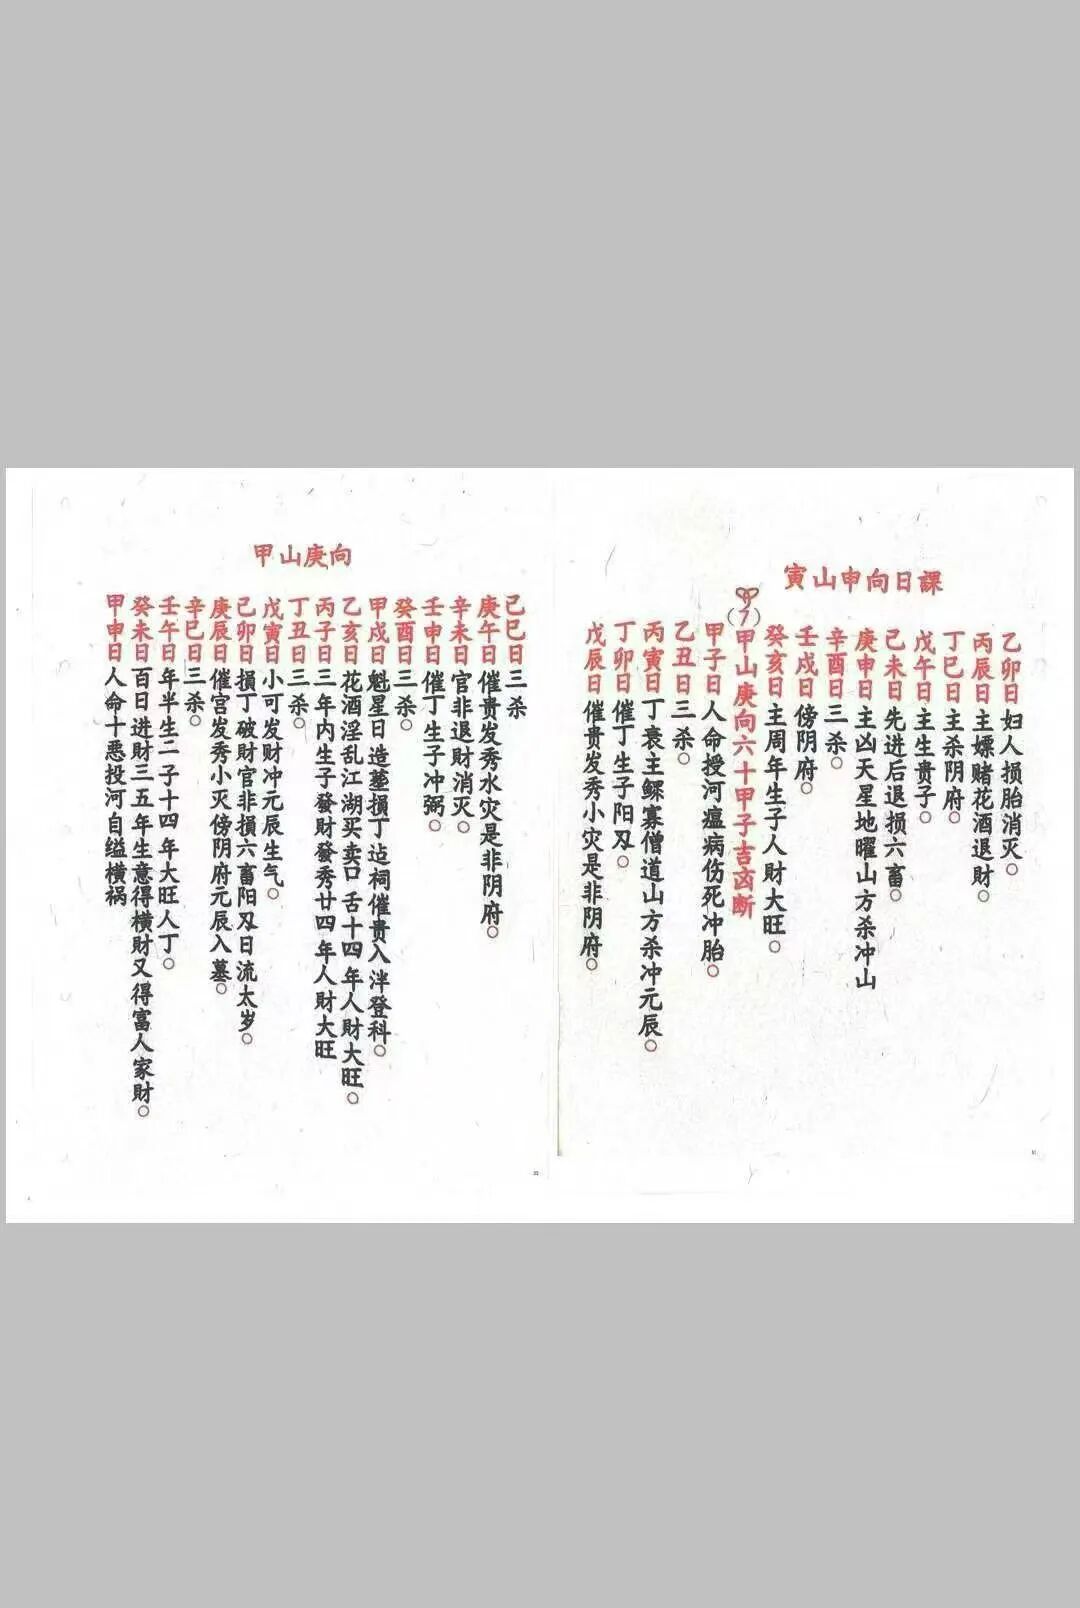 寅山申向日課
乙卯日妇人损胎消灭。
丙辰日主嫖赌花酒退財。
丁巳日主杀阴府。
戊午日主生贵子。
己未日先进后退损六畜。
庚申日主凶天星地曜山方杀冲山
辛酉日三杀。
壬戌日傍阴府。
癸亥日主周年生子人財大旺。
(7)甲山庚向六十甲子吉凶断
甲子日人命授河瘟病伤死冲胎。
乙丑日三杀。
丙寅日丁衰主鳏寡僧道山方杀冲元辰。
丁卯日催丁生子阳刄。
戊辰日催贵发秀小灾是非阴府。
甲山庚向
己巳日三杀
庚午日催贵发秀水灾是非阴府。
辛未日官非退財消灭。
壬申日催丁生子冲弼。
癸酉日三杀。
甲戌日魁星日造塟損丁迠祠催贵入泮登科。
乙亥日花酒淫乱江湖买卖口舌十四年人財大旺。
丙子日三年内生子發財發秀廿四年人財大旺
丁丑日三杀。
戊寅日小可发财冲元辰生气。
己卯日損丁破財官非損六畜阳刄日流太岁。
庚辰日催官发秀小灭傍阴府元辰入墓。
辛巳日三杀。
壬午日年半生二子十四年大旺人丁。
癸未日百日进財三五年生意得横財又得富人家財。
甲申日人命十恶投河自缢横祸